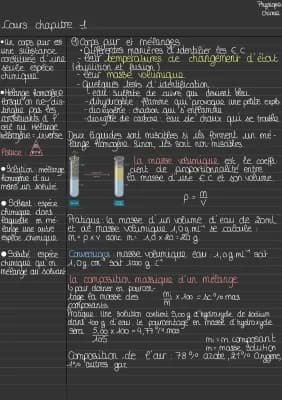 Physique
chimie
Cours chapitre 1
• Un corps pur est
une substance
constituée d'une
seule espèce
chimique.
• Mélange homogène
lorsqu'on ne dis-
tingue pas les
constituants à l'
œil nu. Mélange
hétérogène = inverse
Astuce :
• Solution: mélange
homogène d'au
moins un soluté
• Solvant: espèce
chimique dans
laquelle on mé-
lange une autre
espèce chimique.
• Soluté: espèce
chimique qu'on
mélange au solvant
① Corps pur et mélanges
• Différentes manières d'identifier les E.C
- leur températures de changement d'état
(ébullition et fusion)
- leur masse volumique
- Quelques tests d'identification
- eau: sulfate de cuivre qui devient bleu
- dihydrogène: flamme qui provoque une petite explo
- dioxygène: charbon qui s'enflamme
- dioxyde de carbone: eau de chaux qui se trouble
Deux liquides sont miscibles si ils forment un mé-
lange homogène. Sinon, ils sont non miscibles
la masse volumique est le coeffi-
cient de proportionnalité entre
la masse d'une E.C et son volume.
ρ = m/V
Pratique: la masse d'un volume d'eau de 20mL
et de masse volumique 1,0 g.mL⁻¹ se calcule:
m = ρ x v donc m= 1,0 x 20 = 20 g.
Conversion: masse volumique eau 1,0 g.mL⁻¹ soit
la composition massique d'un mélange
↳ pour donner en pourcen-
tage la masse des
composants
m/m x 100 = % mas
Pratique: Une solution contient 5,00 g d'hydroxyde de sodium
dans 100 g d'eau. Le pourcentage en masse d'hydroxyde
sera 5,00 x 100 = 4,77 % mas
105
mi = m composant
m = masse solution
Composition de l'air: 78% azote, 21% oxygène,
1% autres gaz